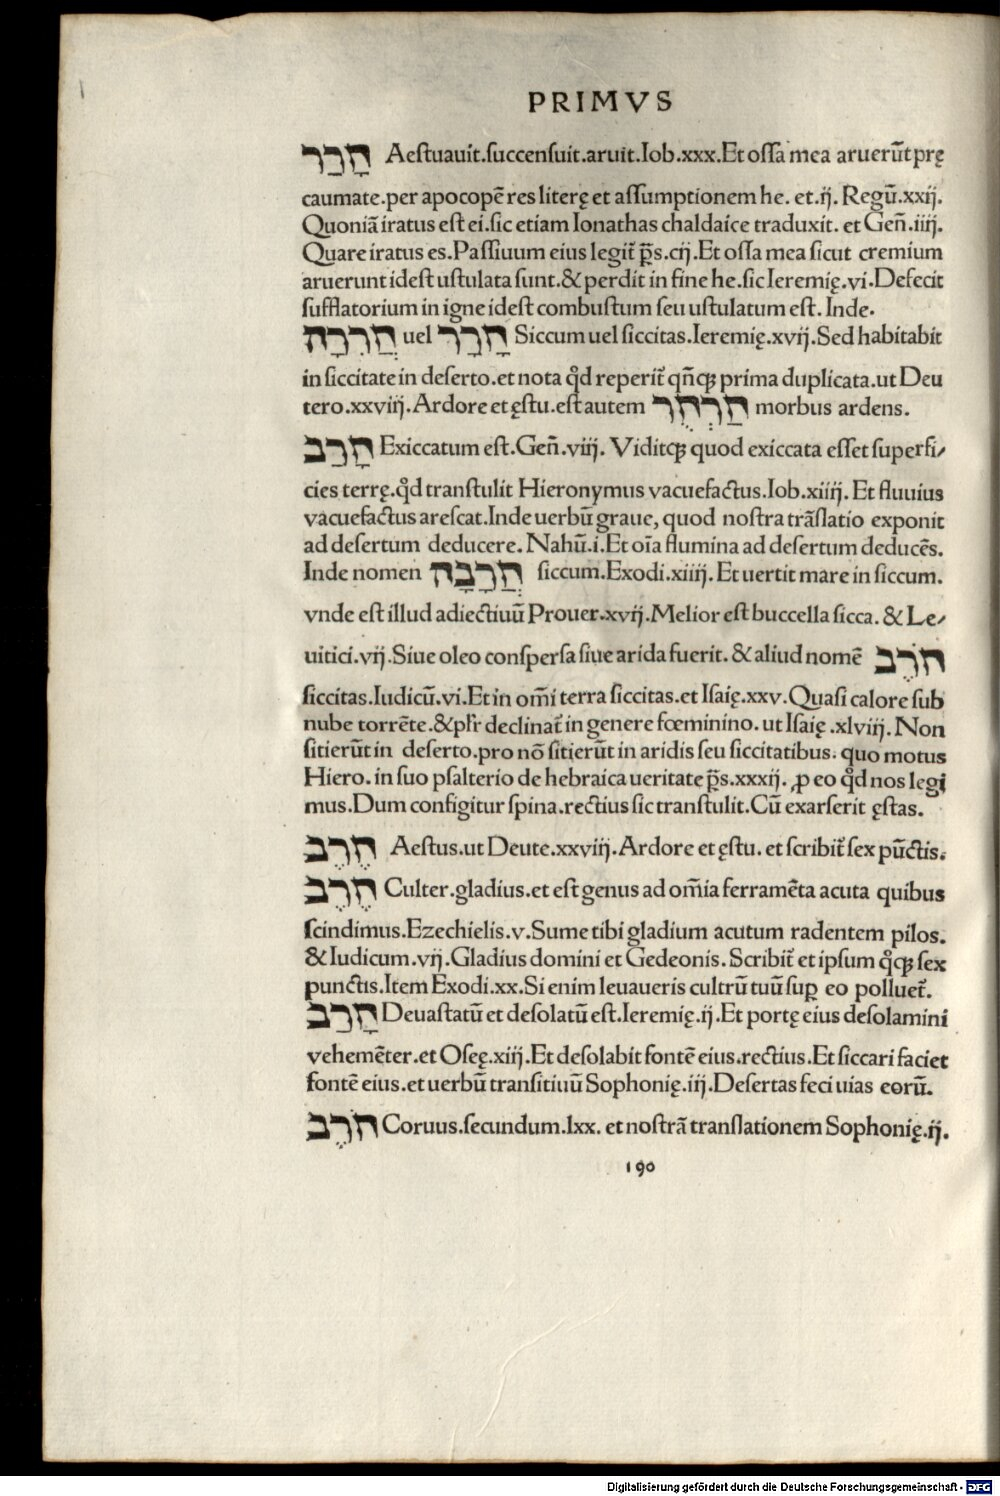 PRIMVS
חָרַר Aestuauit.succensuit.aruit.Iob.xxx.Et ossa mea aruerūt prę
caumate.per apocopē res literę et assumptionem he. et.ij. Regū.xxij.
Quoniā iratus est ei.sic etiam Ionathas chaldaice traduxit. et Geñ.iiij.
Quare iratus es.Passiuum eius legit̄ p̄s.cij.Et ossa mea sicut cremium
aruerunt idest ustulata sunt.& perdit in fine he.sic Ieremię.vi.Defecit
sufflatorium in igne idest combustum seu ustulatum est. Inde.
חֲרֵרָה uel חָרָר Siccum uel siccitas.Ieremię.xvij.Sed habitabit
in siccitate in deserto.et nota qd̄ reperit̄ qn̄qꝫ prima duplicata.ut Deu
tero.xxviij.Ardore et ęstu.est autem חַרְחֻר morbus ardens.
חָרַב Exiccatum est.Geñ.viij. Viditqꝫ quod exiccata esset superfi/
cies terrę.qd̄ transtulit Hieronymus vacuefactus.Iob.xiiij. Et fluuius
vacuefactus arescat.Inde uerbū graue, quod nostra trāslatio exponit
ad desertum deducere. Nahū.i.Et oīa flumina ad desertum deducēs.
Inde nomen חֲרָבָה siccum.Exodi.xiiij. Et uertit mare in siccum.
vnde est illud adiectiuū Prouer.xvij.Melior est buccella sicca. & Le/
uitici.vij.Siue oleo conspersa siue arida fuerit. & aliud nomē חֹרֶב
siccitas.Iudicū.vi.Et in om̄i terra siccitas.et Isaię.xxv.Quasi calore sub
nube torrēte.&pl̄r declinat̄ in genere fœminino. ut Isaię .xlviij. Non
sitierūt in deserto.pro nō sitierūt in aridis seu siccitatibus. quo motus
Hiero. in suo psalterio de hebraica ueritate p̄s.xxxij. ꝓ eo qd̄ nos legi
mus.Dum configitur spina.rectius sic transtulit.Cū exarserit ęstas.
חֶרֶב Aestus.ut Deute.xxviij.Ardore et ęstu. et scribit̄ sex pūctis.
חֶרֶב Culter.gladius.et est genus ad om̄ia ferramēta acuta quibus
scindimus.Ezechielis.v.Sume tibi gladium acutum radentem pilos.
& Iudicum.vij.Gladius domini et Gedeonis. Scribit̄ et ipsum qͦqꝫ sex
punctis.Item Exodi.xx.Si enim leuaueris cultrū tuū suꝑ eo polluet̄.
חָרַב Deuastatū et desolatū est.Ieremię.ij.Et portę eius desolamini
vehemēter.et Oseę.xiij.Et desolabit fontē eius.rectius.Et siccari faciet
fontē eius.et uerbū transitiuū Sophonię.iij.Desertas feci uias eorū.
חֹרֶב Coruus.secundum.lxx. et nostrā translationem Sophonię.ij.
190
Digitalisierung gefördert durch die Deutsche Forschungsgemeinschaft - DFG